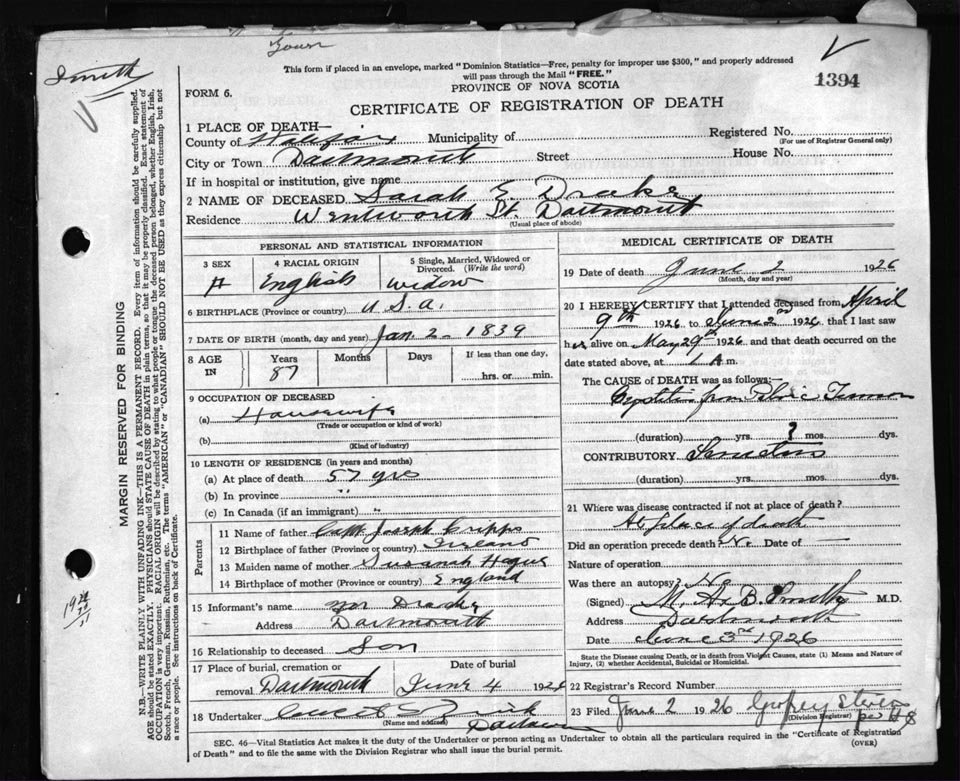 Town
Smith
This form if placed in an envelope, marked "Dominion Statistics—Free, penalty for improper use $300," and properly addressed
will pass through the Mail "FREE."
1394
FORM 6.
PROVINCE OF NOVA SCOTIA
CERTIFICATE OF REGISTRATION OF DEATH
1 PLACE OF DEATH—
County of Halifax Municipality of Registered No.
(For use of Registrar General only)
City or Town Dartmouth Street House No.
If in hospital or institution, give name
2 NAME OF DECEASED Sarah E Drake
Residence Wentworth St. Dartmouth
(Usual place of abode)
PERSONAL AND STATISTICAL INFORMATION
3 SEX 4 RACIAL ORIGIN 5 Single, Married, Widowed or Divorced. (Write the word)
F English Widow
6 BIRTHPLACE (Province or country) U.S.A.
7 DATE OF BIRTH (month, day and year) Jan. 2 - 1839
8 AGE IN Years Months Days If less than one day,
87 hrs. or min.
9 OCCUPATION OF DECEASED
(a) Housewife
(Trade or occupation or kind of work)
(b)
(Kind of industry)
10 LENGTH OF RESIDENCE (in years and months)
(a) At place of death 57 yrs
(b) In province "
(c) In Canada (if an immigrant) "
Parents
11 Name of father Capt Joseph Cripps
12 Birthplace of father (Province or country) Ireland
13 Maiden name of mother Susanah
14 Birthplace of mother (Province or country) England
15 Informant's name Drake
Address Dartmouth
16 Relationship to deceased Son
17 Place of burial, cremation or Date of burial
removal Dartmouth June 4 1926
18 Undertaker
(Name and address)
MEDICAL CERTIFICATE OF DEATH
19 Date of death June 2 1926
(Month, day and year)
20 I HEREBY CERTIFY that I attended deceased from April
9th 1926 to June 2nd 1926 that I last saw
her alive on May 29th 1926 and that death occurred on
date stated above, at 1 A m.
The CAUSE OF DEATH was as follows:—
Cystitis from Pelvic Tumor
(duration) yrs. ? mos. dys.
CONTRIBUTORY
(duration) yrs. mos. dys.
21 Where was disease contracted if not at place of death?
At place of death
Did an operation precede death? No Date of —
Nature of operation
Was there an autopsy? No
(Signed) M.D.
Address Dartmouth
Date June 3rd 1926
State the Disease causing Death, or in death from Violent Causes, state (1) Means and Nature of
Injury, (2) whether Accidental, Suicidal or Homicidal.
22 Registrar's Record Number
23 Filed June 2 1926
(Division Registrar)
SEC. 46—Vital Statistics Act makes it the duty of the Undertaker or person acting as Undertaker to obtain all the particulars required in the "Certificate of Registration
of Death" and to file the same with the Division Registrar who shall issue the burial permit.
(OVER)
MARGIN RESERVED FOR BINDING
N.B.—WRITE PLAINLY WITH UNFADING INK—THIS IS A PERMANENT RECORD. Every item of information should be carefully supplied.
AGE should be stated EXACTLY. PHYSICIANS should STATE CAUSE OF DEATH in plain terms, so that it may be properly classified. Exact statement of
OCCUPATION is very important. RACIAL ORIGIN will be described by stating to what people or tongue the deceased person belonged, whether English, Irish,
Scotch, French, German, Russian, Ruthenian, etc. The terms "AMERICAN" or "CANADIAN" SHOULD NOT BE USED as they express citizenship but not
a race or people. See instructions on back of Certificate.